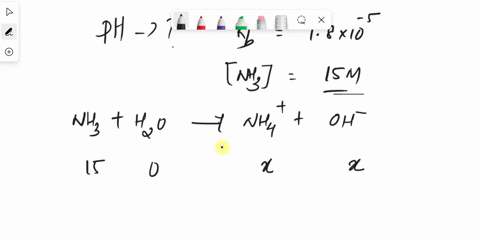 pH → ? Kb = 1.8 × 10⁻⁵
[NH₃] = 15M
NH₃ + H₂O → NH₄⁺ + OH⁻
15 0 x x